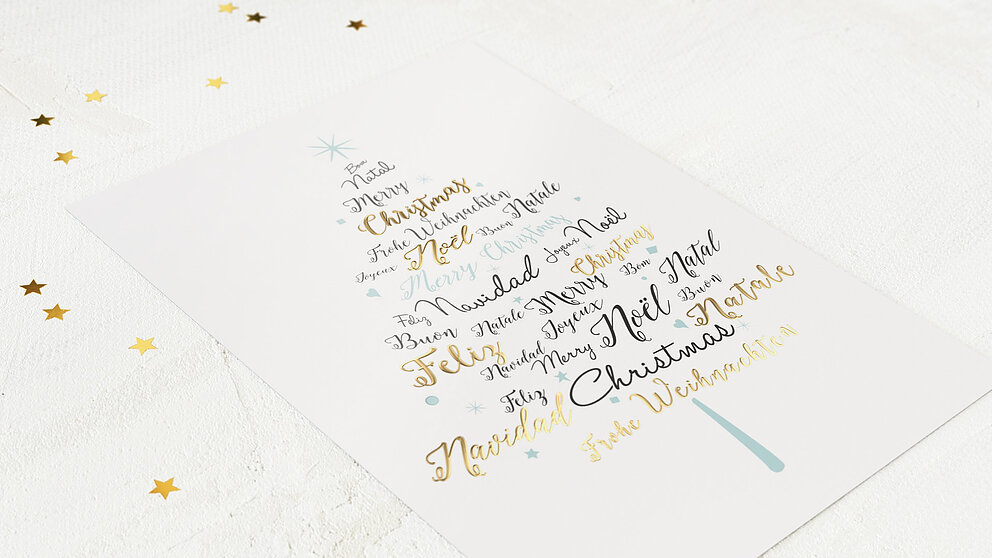 Bom
Natal
Merry
Christmas
Frohe Weihnachten
Joyeux Noël Buon Natale
Merry Christmas
Joyeux Noël
Feliz Navidad
Christmas
Buon Natale Merry Bom Natal
Feliz Joyeux Buon
Navidad Noël Natale
Merry
Feliz Christmas
Navidad
Frohe Weihnachten